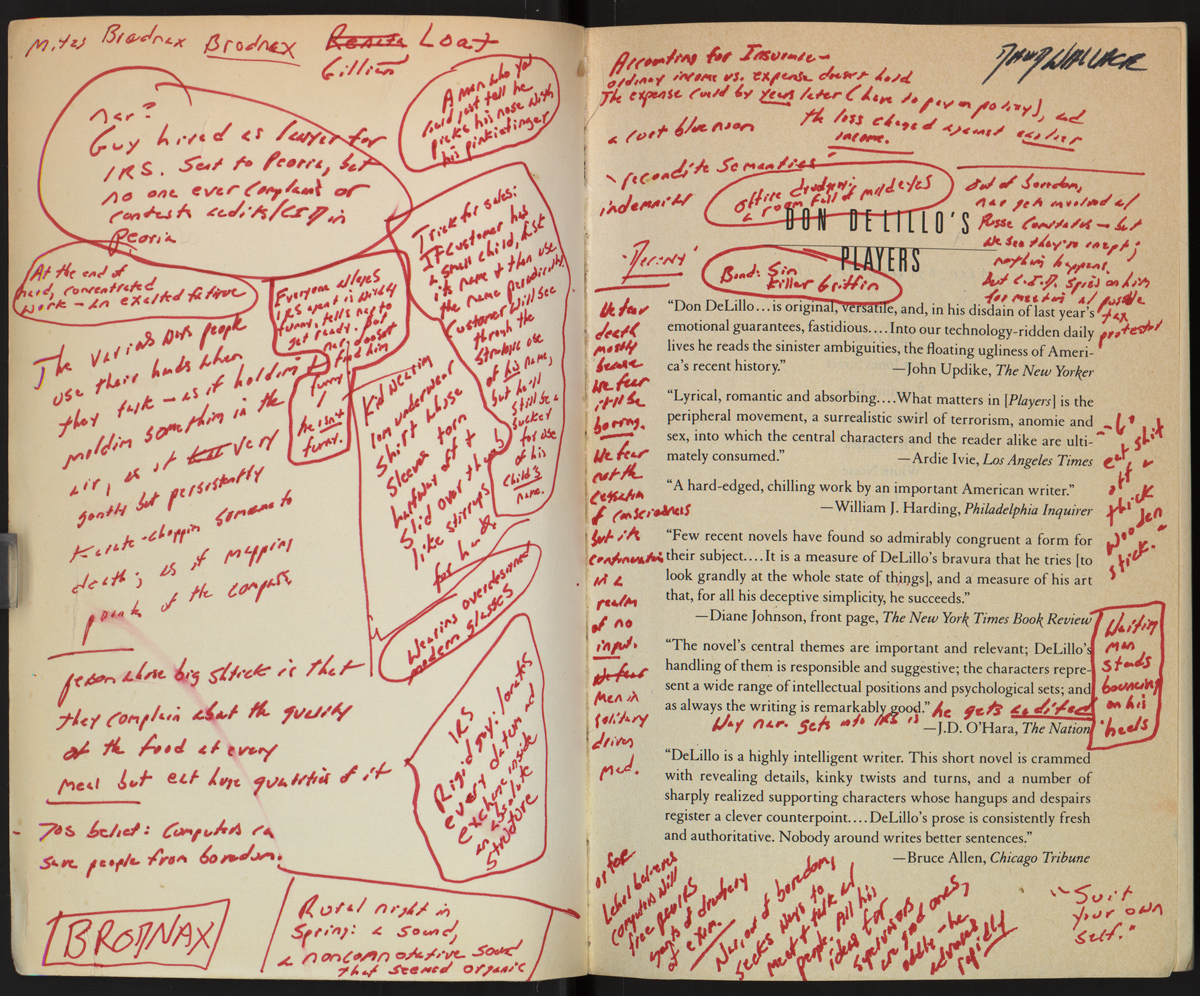 Mites Brodnax Brodnax Loat
Gillian
nar?
Guy hired as lawyer for
IRS. Sent to Peoria, but
no one ever complains or
contests audits/CID in
Peoria
A man who you
could just tell he
picks his nose with
his pinkie finger
At the end of
hard, concentrated
work – an exalted fatigue
Everyone alleges
IRS agent is wildly
funny, tells nar to
get ready. But
nar doesn't
find him
funny
he isn't
funny.
Trick for sales:
If customer has
a small child, ask
its name & then use
the name periodically.
Customer will see
through the
strategic use
of his name,
but he'll
still be a
sucker
for use
of his
child's
name.
The various ways people
use their hands when
they talk – as if holding
molding something in the
air, as if very
gently but persistently
karate-chopping someone to
death; as if mapping
points of the compass
Kid wearing
long underwear
shirt whose
sleeves torn
halfway off &
slid over the
like stirrups
for hands
Wearing overdesigned
modern glasses
person whose big shtick is that
they complain about the quality
of the food at every
meal but eat huge quantities of it
IRS
Rigid guy: locates
every datum and
exchange inside
an absolute
structure
belief: Computers can
save people from boredom.
BRODNAX
Rural night in
Spring: a sound,
a noncomnotative sound
that seemed organic
Accounting for Insurance –
ordinary income vs. expense doesn't hold
The expense could be years later (have to pay on policy), and
the loss charged against earlier
income.
a curt blue noon
"recondite semantics"
indemnitor
office drudgery
a room full of mild eyes
DON DELILLO'S
PLAYERS
Out of boredom,
nar gets involved w/
Posse Comitatus – but
we see they're inept;
nothing happens.
but C.I.D. spies on him
for meeting w/ possible
tax
protestor
Band: Sin
Killer Griffin
We fear
death
mostly
because
we fear
it'll be
boring.
We fear
not the
cessation
of consciousness
but its
continuation
in a
realm
of no
input.
Men in
solitary
driven
mad.
"Don DeLillo...is original, versatile, and, in his disdain of last year's
emotional guarantees, fastidious....Into our technology-ridden daily
lives he reads the sinister ambiguities, the floating ugliness of Ameri-
ca's recent history."
—John Updike, The New Yorker
"Lyrical, romantic and absorbing....What matters in [Players] is the
peripheral movement, a surrealistic swirl of terrorism, anomie and
sex, into which the central characters and the reader alike are ulti-
mately consumed."
—Ardie Ivie, Los Angeles Times
"A hard-edged, chilling work by an important American writer."
—William J. Harding, Philadelphia Inquirer
"Few recent novels have found so admirably congruent a form for
their subject....It is a measure of DeLillo's bravura that he tries [to
look grandly at the whole state of things], and a measure of his art
that, for all his deceptive simplicity, he succeeds."
—Diane Johnson, front page, The New York Times Book Review
"The novel's central themes are important and relevant; DeLillo's
handling of them is responsible and suggestive; the characters repre-
sent a wide range of intellectual positions and psychological sets; and
as always the writing is remarkably good."
—J.D. O'Hara, The Nation
Way nar. gets into IRS is he gets audited
"DeLillo is a highly intelligent writer. This short novel is crammed
with revealing details, kinky twists and turns, and a number of
sharply realized supporting characters whose hangups and despairs
register a clever counterpoint....DeLillo's prose is consistently fresh
and authoritative. Nobody around writes better sentences."
—Bruce Allen, Chicago Tribune
eat shit
off a
thick
wooden
stick."
Waiting
man
stands
bouncing
on his
heels
believes
computers will
free
of drudgery
of exam.
Nar, out of boredom,
seeks ways to
meet & talk w/
people. All his
ideas for
supervisors
are good ones,
oddly – he
advances
rapidly
"Suit
your own
self."